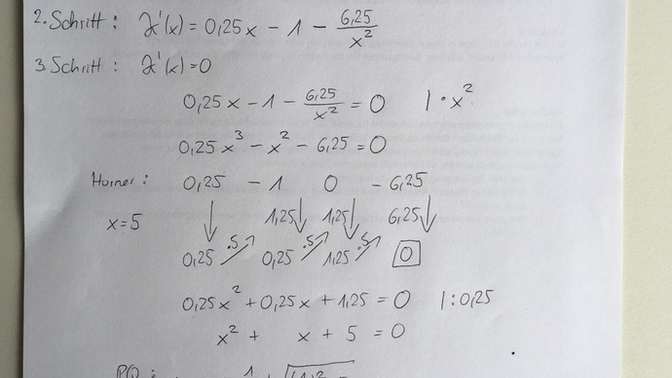 2. Schritt: f'(x) = 0,25x - 1 - 6,25/x²
3. Schritt: f'(x) = 0
0,25x - 1 - 6,25/x² = 0 | · x²
0,25x³ - x² - 6,25 = 0
Horner: 0,25 -1 0 -6,25
x=5 1,25 1,25 6,25
0,25 ·5 0,25 ·5 1,25 ·5 0
0,25x² + 0,25x + 1,25 = 0 | : 0,25
x² + x + 5 = 0
PQ: